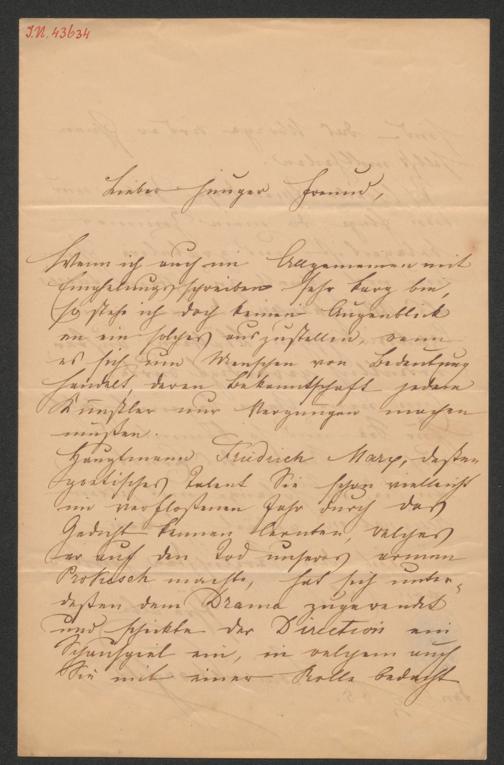 I.N. 43634
Lieber junger Freund,
Wenn ich auch im Allgemeinen mit
Empfelungsschreiben sehr karg bin,
so stehe ich doch keinen Augenblick
an ein solches auszustellen, wenn
es sich um Menschen von Bedeutung
handelt deren Bekanntschaft jedem
Künstler nur Vergnügen machen
müßen.
Hauptmann Friedrich Marx, deßen
poetisches Talent Sie schon vielleicht
im verfloßenen Jahr durch das
Gedicht kennen lernten, welches
er auf den Tod unseres armen
Prokesch machte, hat sich unter-
deßen dem Drama zugewendet
und schickte der Direction ein
Schauspiel ein, in welchem auch
Sie mit einer Rolle bedacht